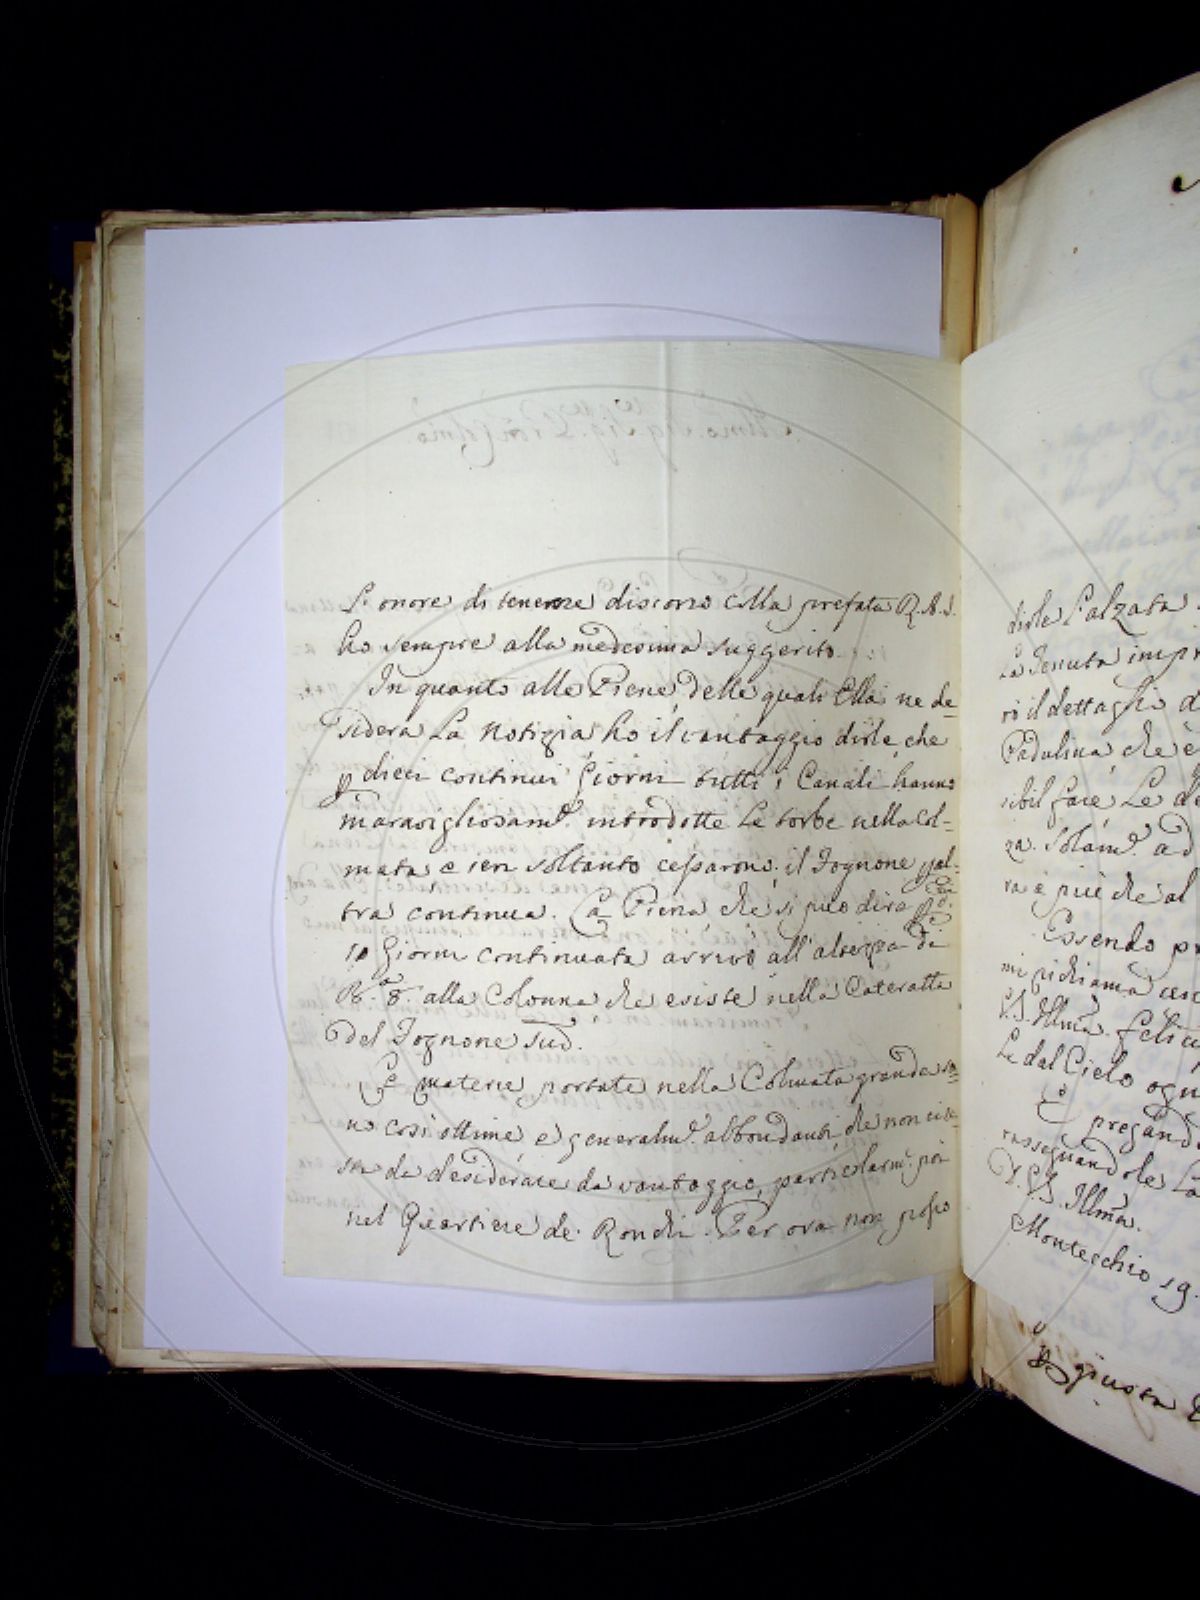 L'onore di tenere discorso colla prefata R.A.S.
ho sempre alla medesima suggerito.
In quanto alle Piene, delle quali Ella ne de=
sidera la Notizia, ho il vantaggio dirle, che
p dieci continui Giorni tutti i Canali hanno
maravigliosam.e introdotte le torbe nella Col=
mata e ieri soltanto cessarono: il Fognone
tra continua. La Piena, che si può dire
10 Giorni continuata arrivò all'altezza di
B.a 8. alla Colonna che esiste nella Cateratta
del Fognone Sud.
Le materie portate nella Colmata grande so=
no così ottime e generalm.e abbondanti, che non
da desiderare da vantaggio, particolarm.e poi
nel Quartiere de' Ronchi. Per ora non posso
dirle l'alzata
La Tenuta
rò il dettaglio
Padulina, che è
sibil fare le
za. Solam.e ad
ra è più che al
Essendo
V.S. Illma.
Le dal Cielo ogni
pregand
rassegnandole
V.S. Illma.
Montecchio 19.